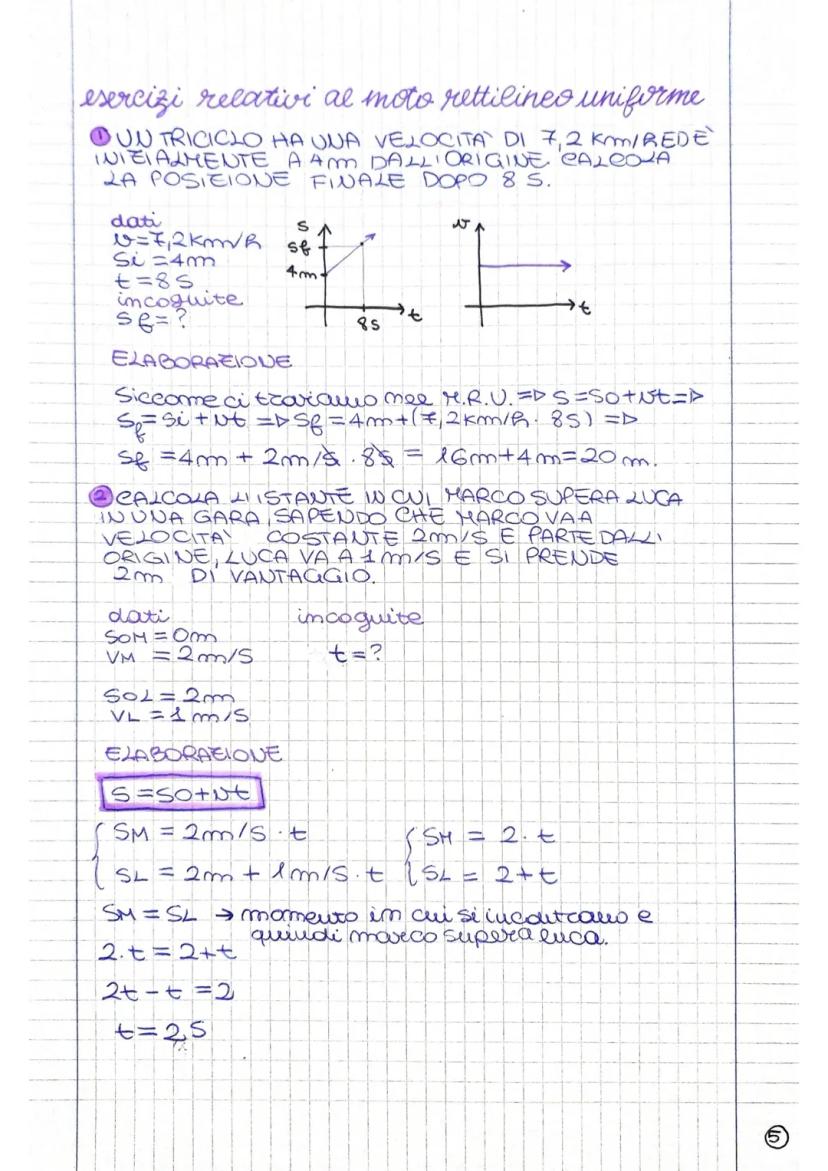 esercizi relativi al moto rettilineo uniforme
① UN TRICICLO HA UNA VELOCITA' DI 7,2 Km/h ED È
INIZIALMENTE A 4m DALL'ORIGINE. CALCOLA
LA POSIZIONE FINALE DOPO 8 S.
dati
v=7,2Km/h
Si =4m
t =8s
incognite
Sf=?
S
Sf
4m
8s
t
v
t
ELABORAZIONE
Siccome ci troviamo nel M.R.U. => S=S0+vt=>
Sf=Si+vt => Sf =4m+(7,2Km/h · 8s) =>
Sf =4m + 2m/s · 8s = 16m+4m=20m.
② CALCOLA L'ISTANTE IN CUI MARCO SUPERA LUCA
IN UNA GARA, SAPENDO CHE MARCO VA A
VELOCITA' COSTANTE 2m/s E PARTE DALL'
ORIGINE, LUCA VA A 1m/s E SI PRENDE
2m DI VANTAGGIO.
dati incognite
S0M = 0m
VM = 2m/s t=?
S0L = 2m
VL = 1m/s
ELABORAZIONE
S=S0+vt
SM = 2m/s · t SM = 2· t
SL = 2m + 1m/s · t SL = 2+t
SM = SL → momento in cui si incontrano e
quindi marco supera luca.
2·t = 2+t
2t - t = 2
t = 2s
⑤